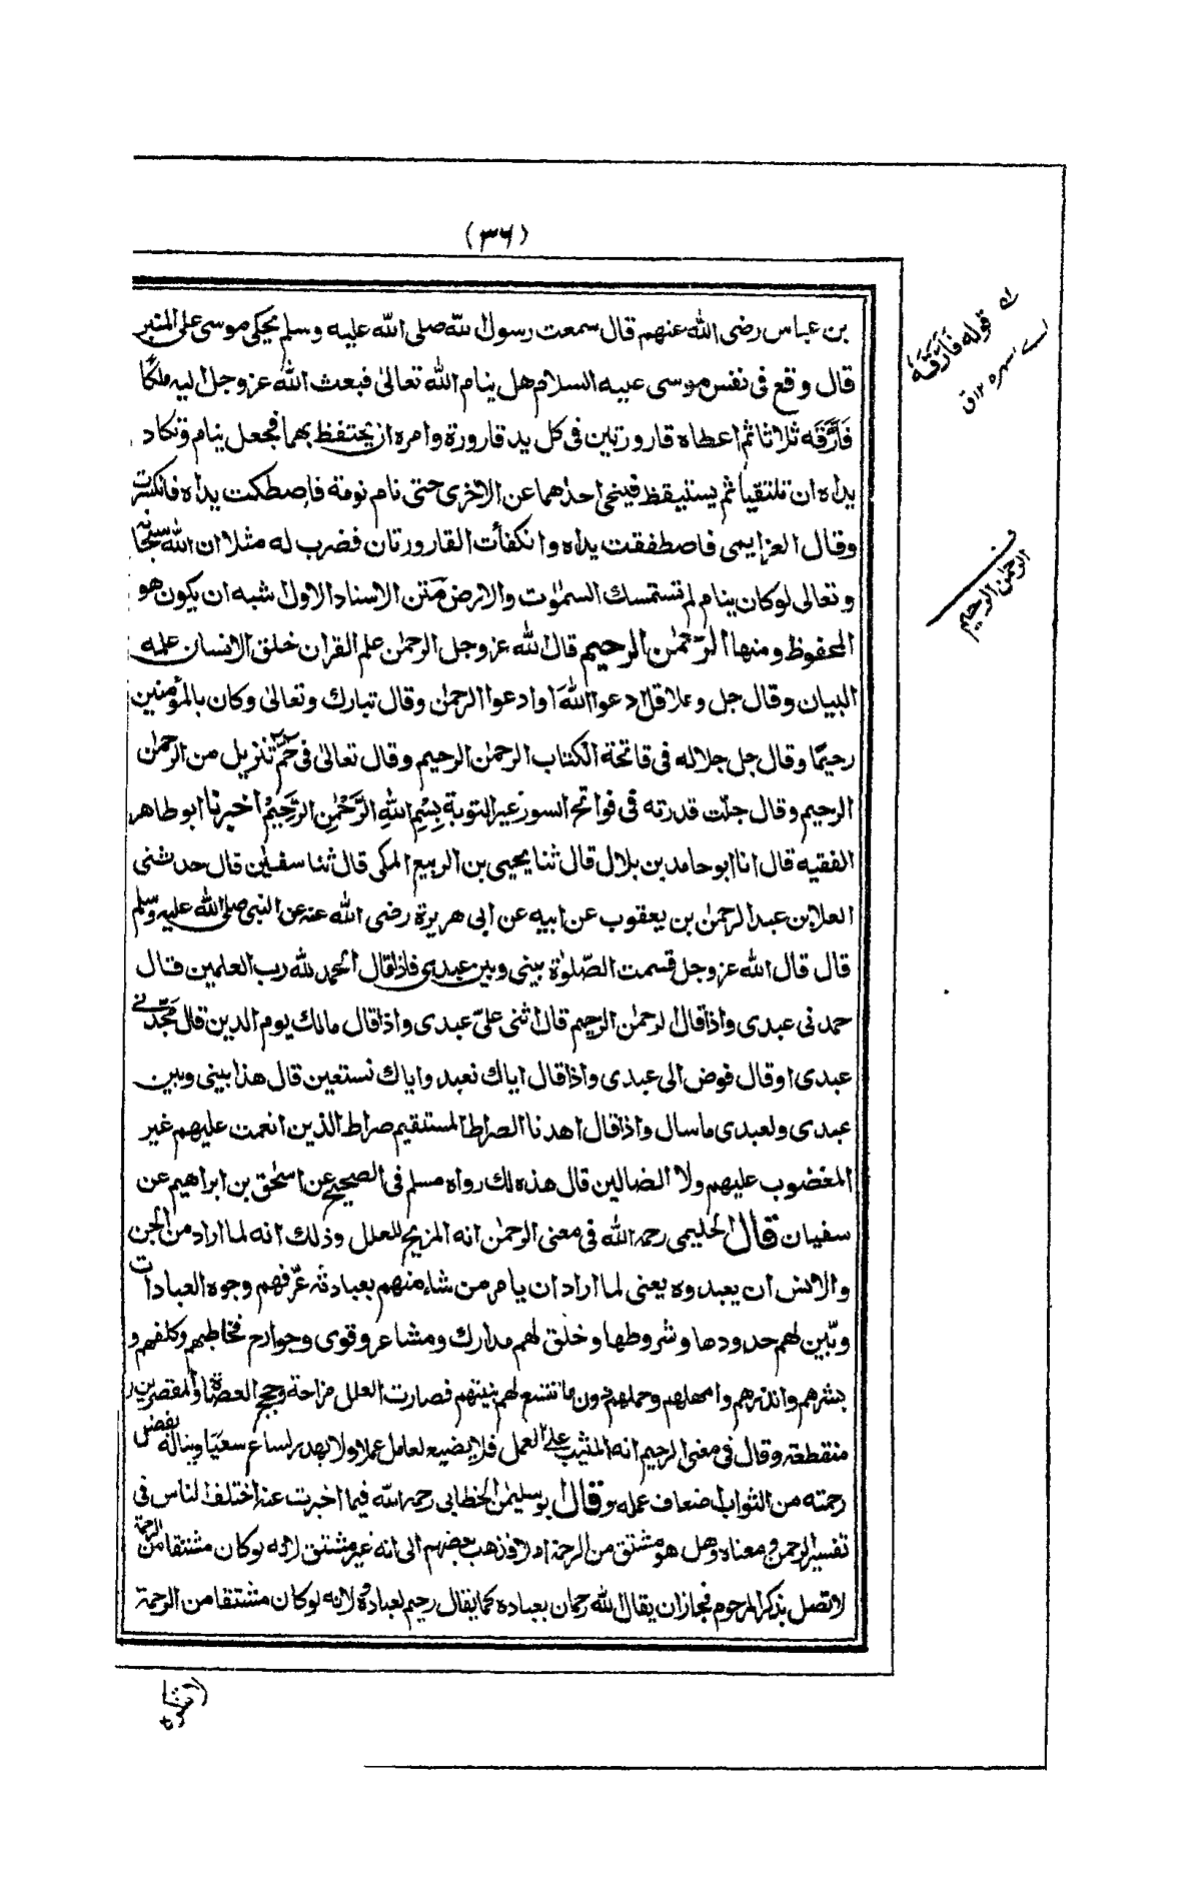 (٣٦)
بن عباس رضى الله عنهم قال سمعت رسول الله صلى الله عليه وسلم يحكى موسى على المنبر
قال وقع فى نفس موسى عليه السلام هل ينام الله تعالى فبعث الله عز وجل اليه ملكًا
فَأَرَّقَه ثلاثا ثم اعطاه قارورتين فى كل يد قارورة وامره ان يحتفظ بهما فجعل ينام وتكاد
يداه ان تلتقيا ثم يستيقظ فينحى احدهما عن الاخرى حتى نام نومة فاصطكت يداه فانكسرت
وقال العزايمى فاصطفقت يداه وانكفأت القارورتان فضرب له مثلا ان الله سبحانه
وتعالى لو كان ينام لم تستمسك السمٰوٰت والارض متن الاسناد الاول اشبه ان يكون هو
المحفوظ ومنها الرَّحمٰن الرحيم قال الله عز وجل الرحمٰن علم القران خلق الانسان علمه
البيان وقال جل وعلا قل ادعوا اللهَ اوادعوا الرحمٰن وقال تبارك وتعالى وكان بالمؤمنين
رحيمًا وقال جل جلاله فى فاتحة الكتاب الرحمٰن الرحيم وقال تعالىٰ فى حٰمٓ تنزيل من الرحمٰن
الرحيم وقال جلّت قدرته فى فواتح السور غير التوبة بِسْمِ اللهِ الرَّحْمٰنِ الرَّحِيْمْ اخبرنا ابو طاهر
الفقيه قال انا ابو حامد بن بلال قال ثنا يحيى بن الربيع المكى قال ثنا سفيٰن قال حدثنى
العلا بن عبد الرحمٰن بن يعقوب عن ابيه عن ابى هريرة رضى الله عنه عن النبى صلى الله عليه وسلم
قال قال الله عز وجل قسمت الصّلوٰة بينى وبين عبدى فاذا قال الحمد لله رب العلمين قال
حمدنى عبدى واذا قال الرحمٰن الرحيم قال اثنى علىّ عبدى واذا قال مالك يوم الدين قال مَجّدنى
عبدى او قال فوض الى عبدى واذا قال اياك نعبد واياك نستعين قال هذا بينى وبين
عبدى ولعبدى ما سال واذا قال اهدنا الصراط المستقيم صراط الذين انعمت عليهم غير
المغضوب عليهم ولا الضالين قال هذه لك رواه مسلم فى الصحيح عن اسحٰق بن ابراهيم عن
سفيان قال الحليمى رحمه الله فى معنى الرحمٰن انه المزيح للعلل وذلك انه لما اراد من الجن
والانس ان يعبدوه يعنى لما اراد ان يامر من شاء منهم بعبادته عرّفهم وجوه العبادات
وبيّن لهم حدودها وشروطها وخلق لهم مدارك ومشاعر وقوى وجوارح فخاطبهم وكلفهم و
بشرهم وانذرهم وامهلهم وحملهم دون ما تتسع لهم بنيتهم فصارت العلل مزاحة وحجج العصاة والمقصرين
منقطعة وقال فى معنى الرحيم انه المثيب على العمل فلا يضيع لعامل عملا ولا يهدر لساع سعيًا وينيله بفضل
رحمته من الثواب اضعاف عمله وقال ابو سليمٰن الخطابى رحمه الله فيما اخبرت عنه اختلف الناس فى
تفسير الرحمن ومعناه وهل هو مشتق من الرحمة ام لا فذهب بعضهم الى انه غير مشتق لانه لو كان مشتقا من الرحمة
لاتصل بذكر المرحوم فجاز ان يقال لله رحمان بعباده كما يقال رحيم بعباده ولانه لو كان مشتقا من الرحمة
قوله فَأَرَّقَهُ
اے اسهره ١٢ ق
الرحمٰن الرحيم